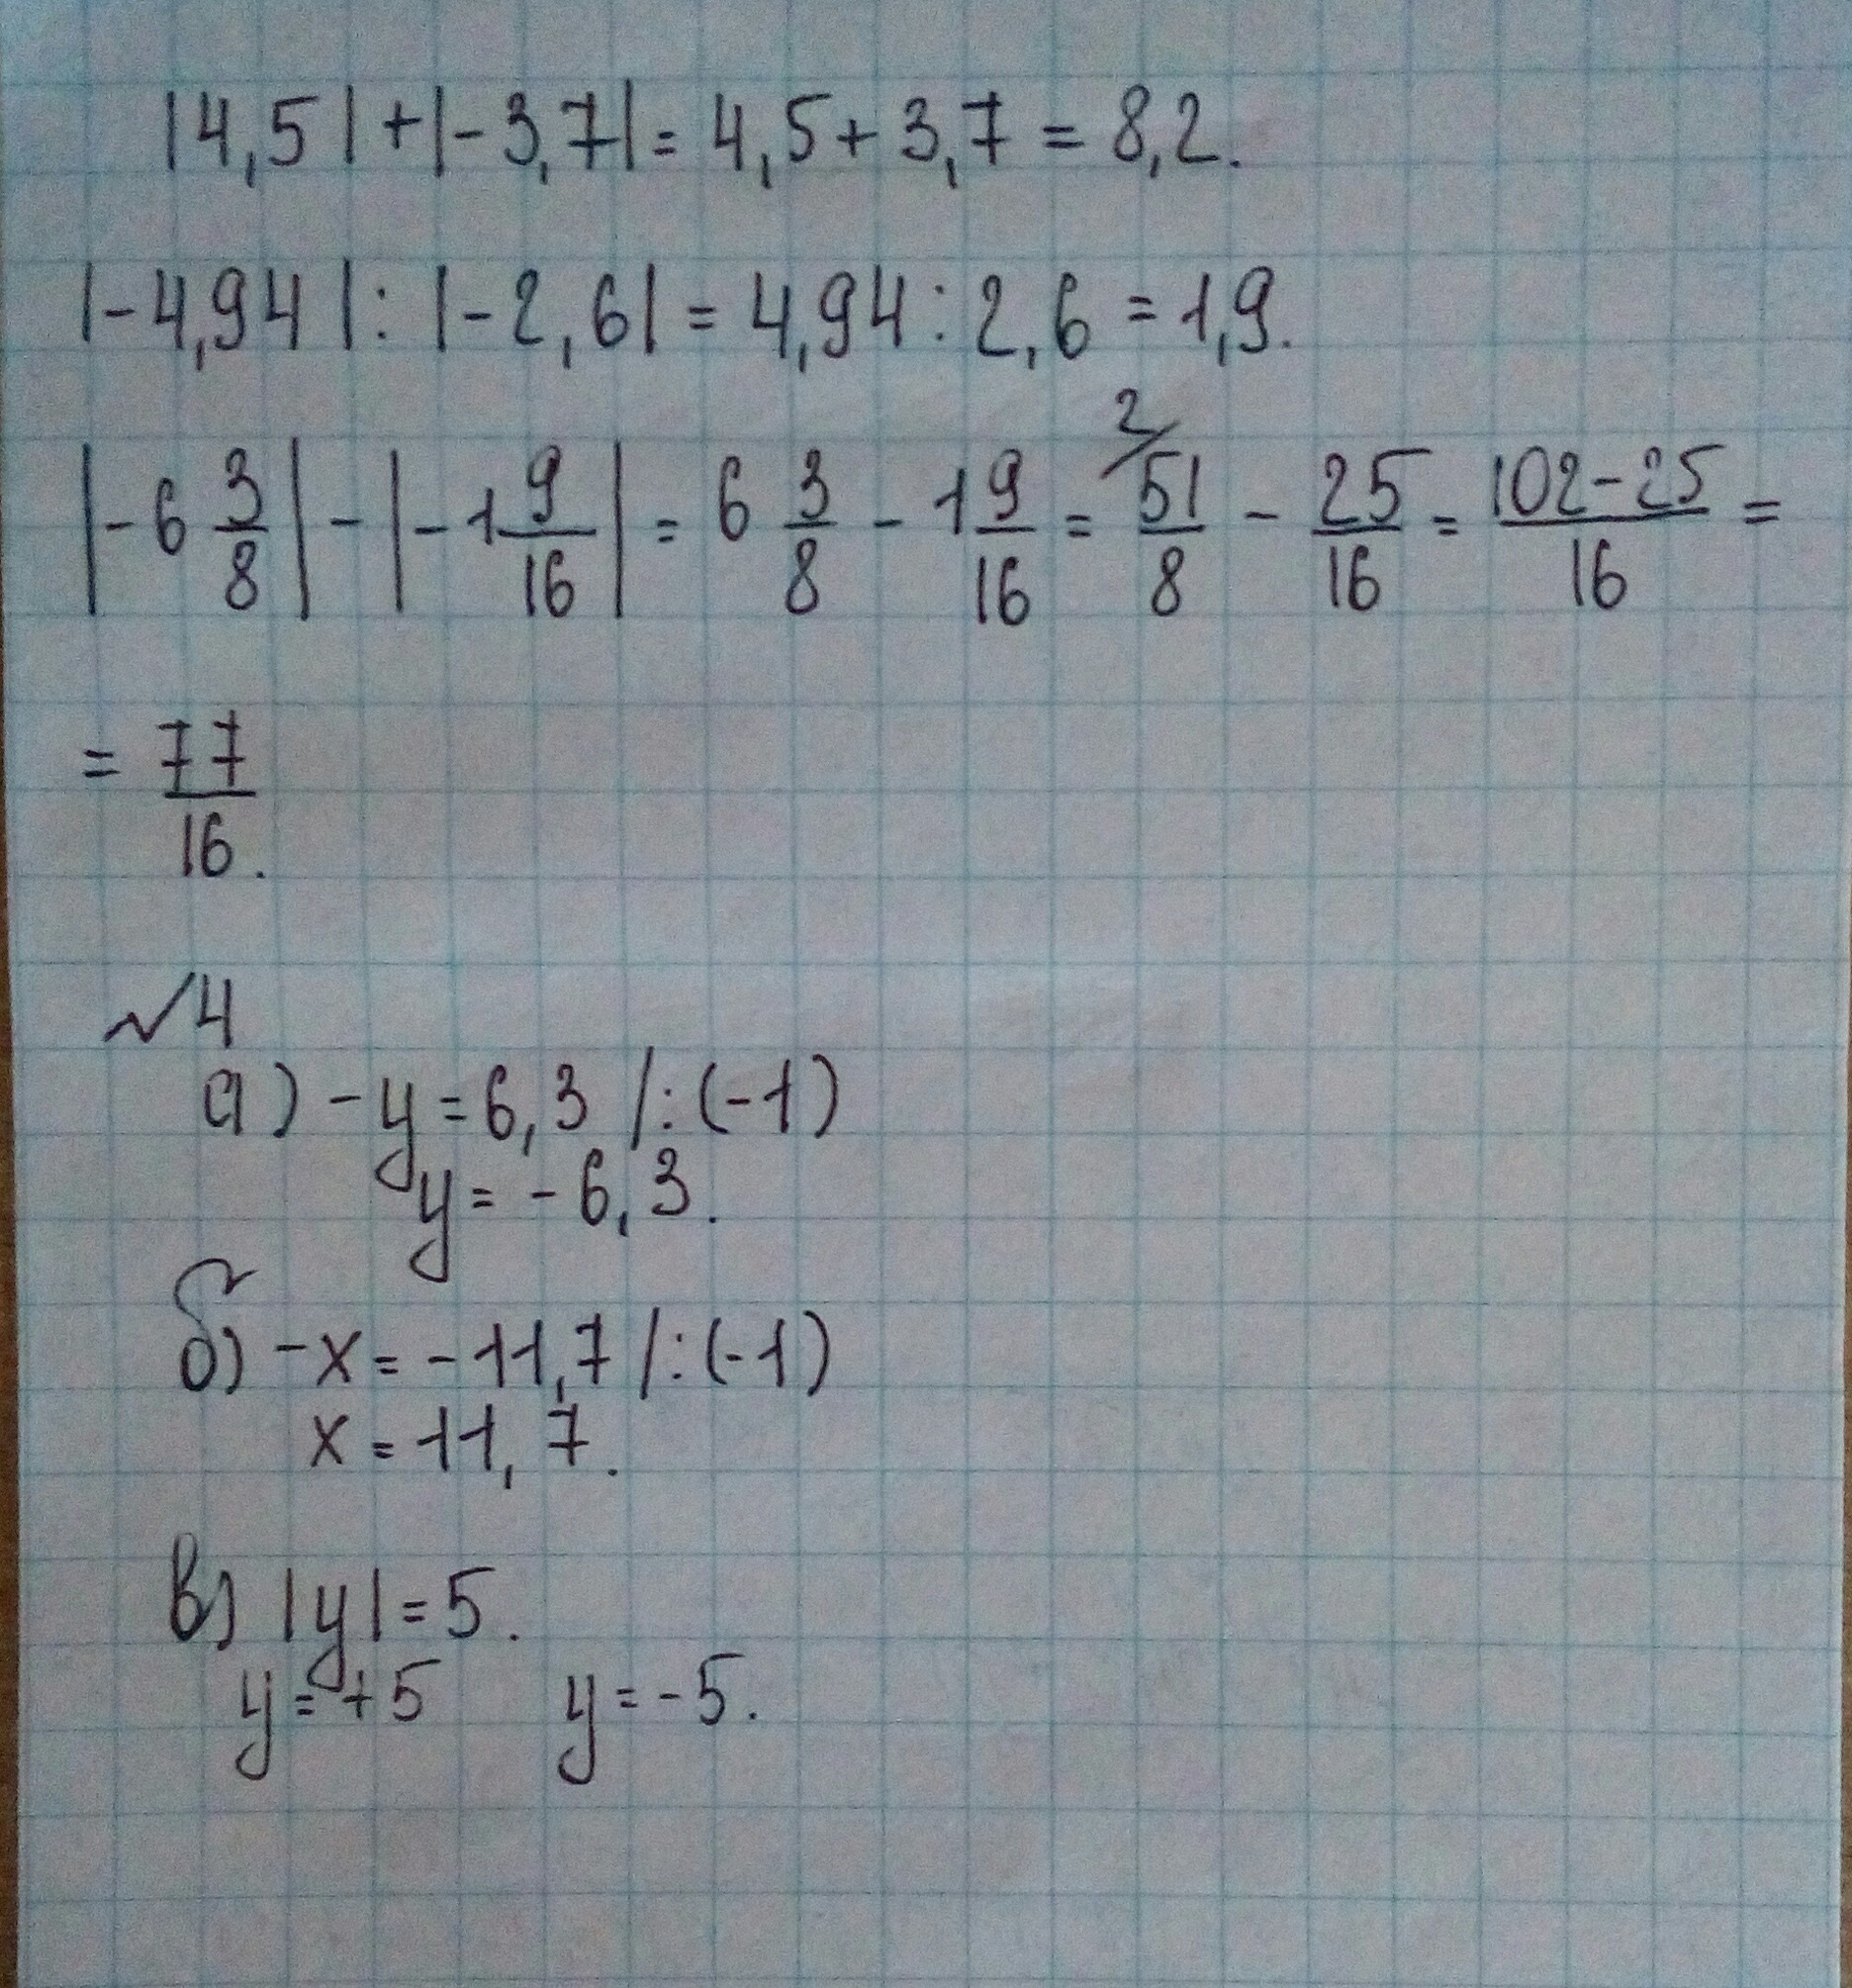 |4,5|+|-3,7|= 4,5+3,7 = 8,2.
|-4,94|:|-2,6|= 4,94:2,6 =1,9.
|-6 3/8|-|-1 9/16|= 6 3/8 - 1 9/16 = 2/ 51/8 - 25/16 = 102-25/16 =
= 77/16.
№4
а) -y=6,3 /:(-1)
y= -6,3.
б) -x= -11,7 /:(-1)
x=11,7.
в) |y|=5.
y=+5 y=-5.